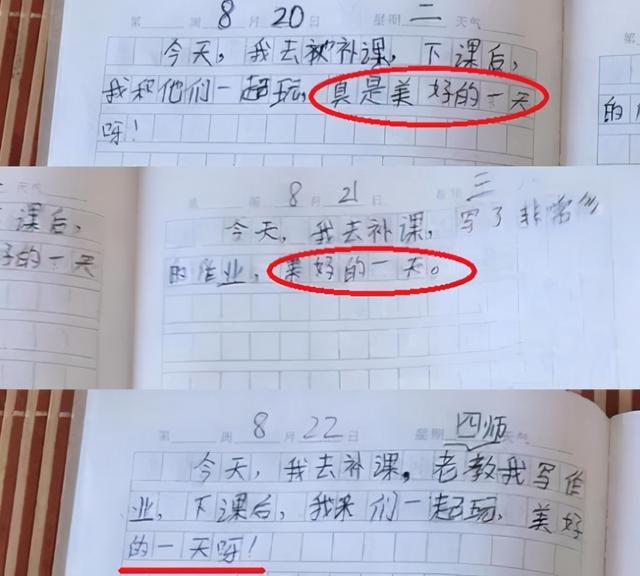 第 周 8 月 20 日 星期 二 天气
今天,我去补课,下课后,
我和他们一起玩,真是美好的一天
呀!
第
的
天气
课后,
的一天
8 月 21 日 三
今天,我去补课,写了非常多
的作业,美好的一天。
第 周 8 月 22 日 星期 四师 天气
今天,我去补课,老教我写作
业,下课后,我们一起玩,美好
的一天呀!